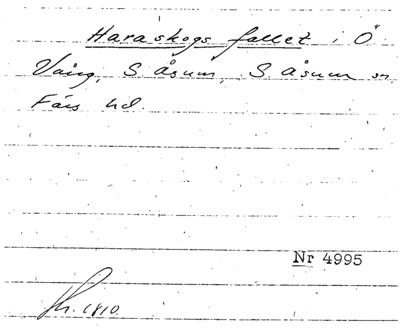 Haraskogs fallet i Ö
Vång, S Åsum, S Åsum sn
Färs hd.
Nr 4995
1810